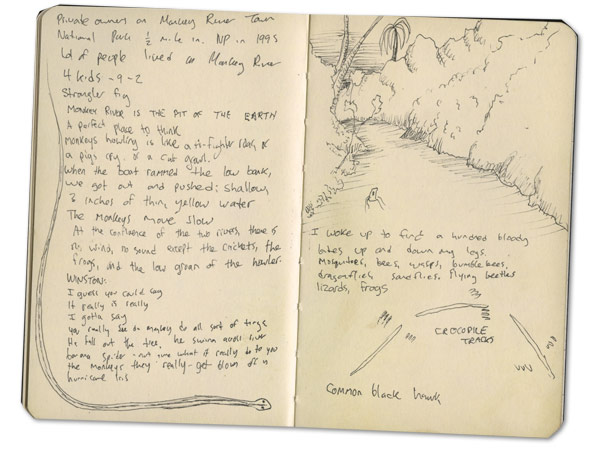 Private owners on Monkey River Town
National Park ½ mile in. NP in 1995
Lot of people lived on Monkey River
4 kids - 9 - 2
Strangler fig
MONKEY RIVER IS THE PIT OF THE EARTH
A perfect place to think
Monkeys howling is like a
a pigs cry or a cat growl.
When the boat rammed the low bank,
we got out and pushed: shallow,
3 inches of thin, yellow water
The Monkeys move slow
At the confluence of the two rivers, there is
no wind, no sound except the crickets, the
frogs, and the low groan of the howler.
WINSTON:
I guess you could say
It really is really
I gotta say
you really see da monkey do all sort of tangs
He fell out the tree, he swam across river
banana spider - not sure what it really do to you
the monkeys they really get blown
hurricane Iris
I woke up to find a hundred bloody
bites up and down my legs.
Mosquitoes, bees, wasps, bumblebees,
dragonflies, sandflies, flying beetles
lizards, frogs
CROCODILE
TRACKS
Common black hawk